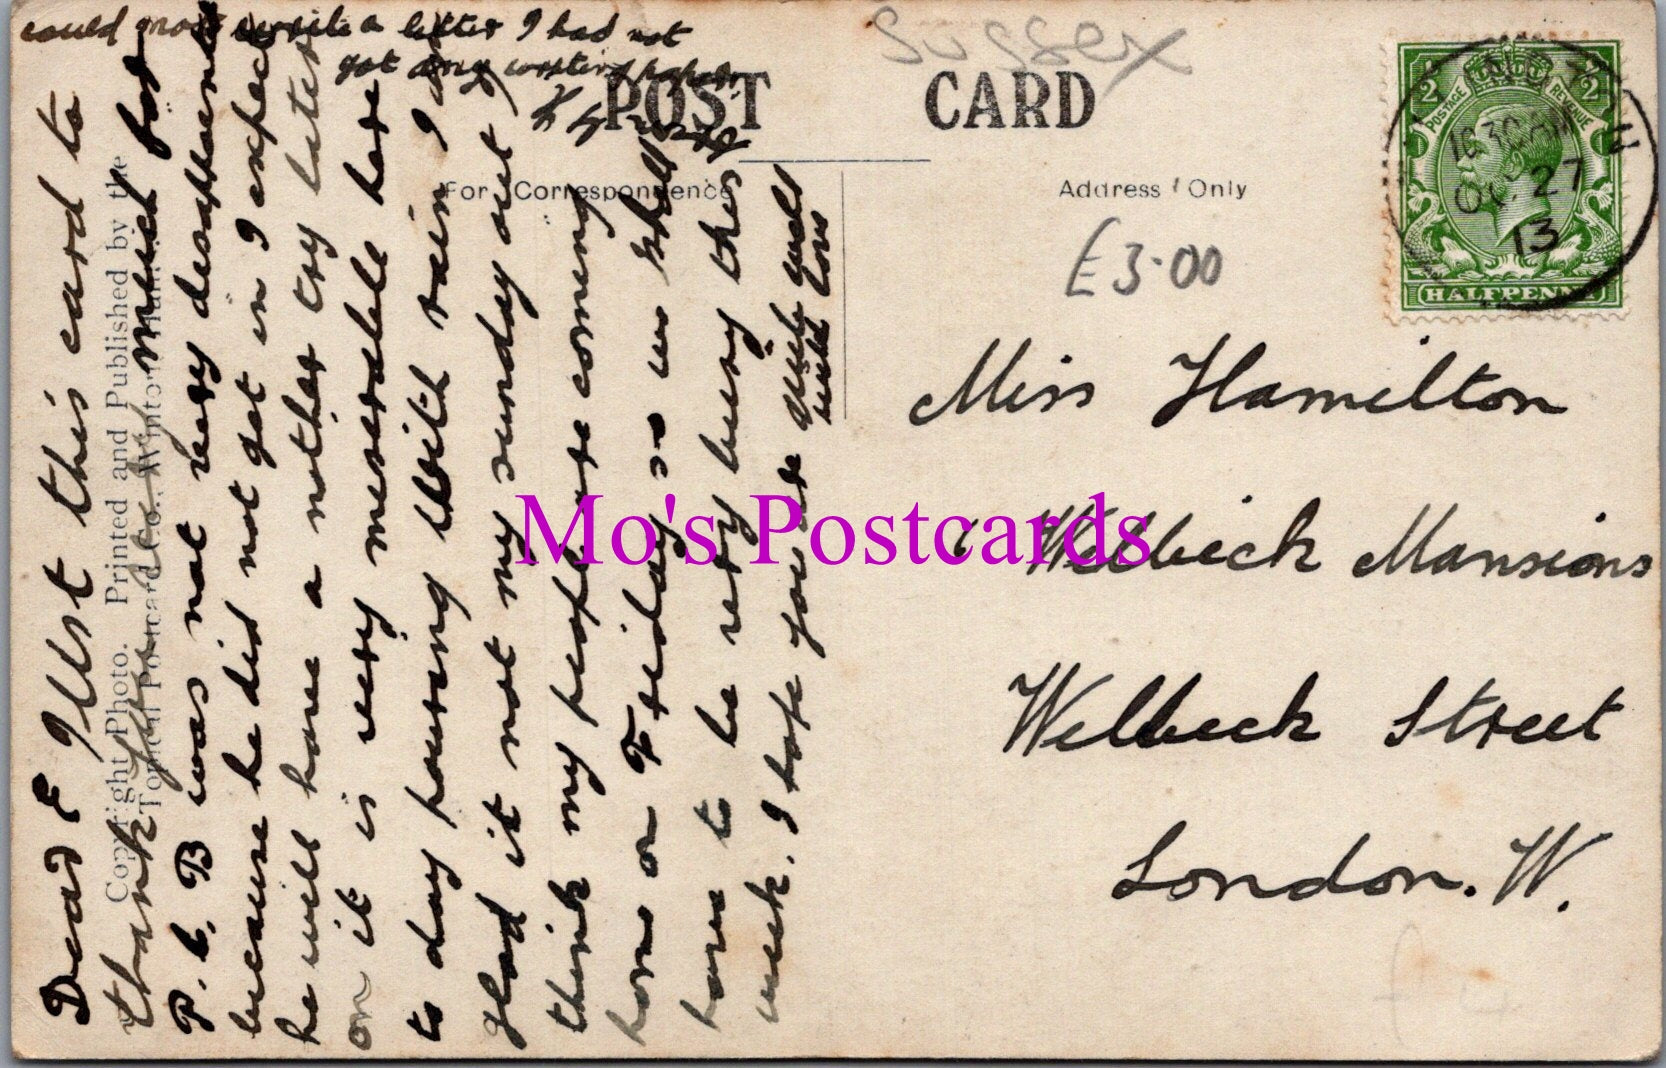 could not write a letter I had not
got any writing paper.
Sussex
POST CARD
For Correspondence
Address Only
£3.00
10.30 AM
OC 27
13
POSTAGE REVENUE
HALFPENNY
Miss Hamilton
Welbeck Mansions
Welbeck Street
London. W.
Dear E Just this card to
thank you very much for
P. C. B was not very dissapointed
because he did not get in I expect
he will have a nother try later
on it is very miserable here
to day pouring with rain I am
glad it not my sunday out I
think my people are coming
home on Friday so us shall
have to be very busy this
week. I hope you are quite well
with love
Copyright Photo. Printed and Published by the
Topical Postcard Co., Winton
Mo's Postcards